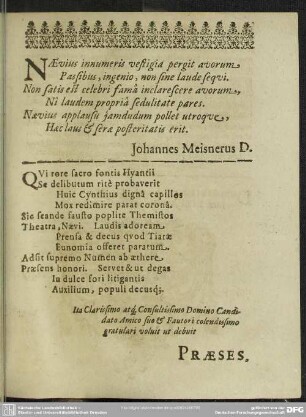 NÆvius innumeris vestigia pergit avorum
Passibus, ingenio, non sine laude seqvi.
Non satis est celebri famâ inclarescere avorum,
Ni laudem propriâ sedulitate pares.
Nævius applausu jamdudum pollet utroque,
Hæc laus & seræ posteritatis erit.
Johannes Meisnerus D.
QVi rore sacro fontis Hyantii
Se delibutum ritè probaverit
Huic Cynthius dignâ capillos
Mox redimire parat coronâ.
Sic scande fausto poplite Themistos
Theatra, Nævi. Laudis adoream
Prensa & decus qvod Tiaræ
Eunomia offeret paratum.
Adsit supremo Numen ab æthere
Præsens honori. Servet & ut degas
In dulce fori litigantis
Auxilium, populi decusq;.
Ita Clarissimo atq; Consultissimo Domino Candi-
dato Amico suo & Fautori colendissimo
gratulari voluit ut debuit
PRÆSES.